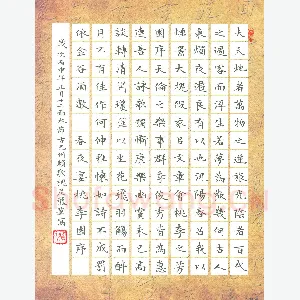 夫天地者萬物之逆旅光陰者百代
之過客而浮生若夢為歡幾何古人
秉燭夜遊良有以也況陽春召我以
煙景大塊假我以文章會桃李之芳
園序天倫之樂事群季俊秀皆為惠
連吾人詠歌獨慚康樂幽賞未已高
談轉清開瓊筵以坐花飛羽觴而醉
月不有佳作何伸雅懷如詩不成罰
依金谷酒數 春夜宴桃李園序
歲次申年正月十二